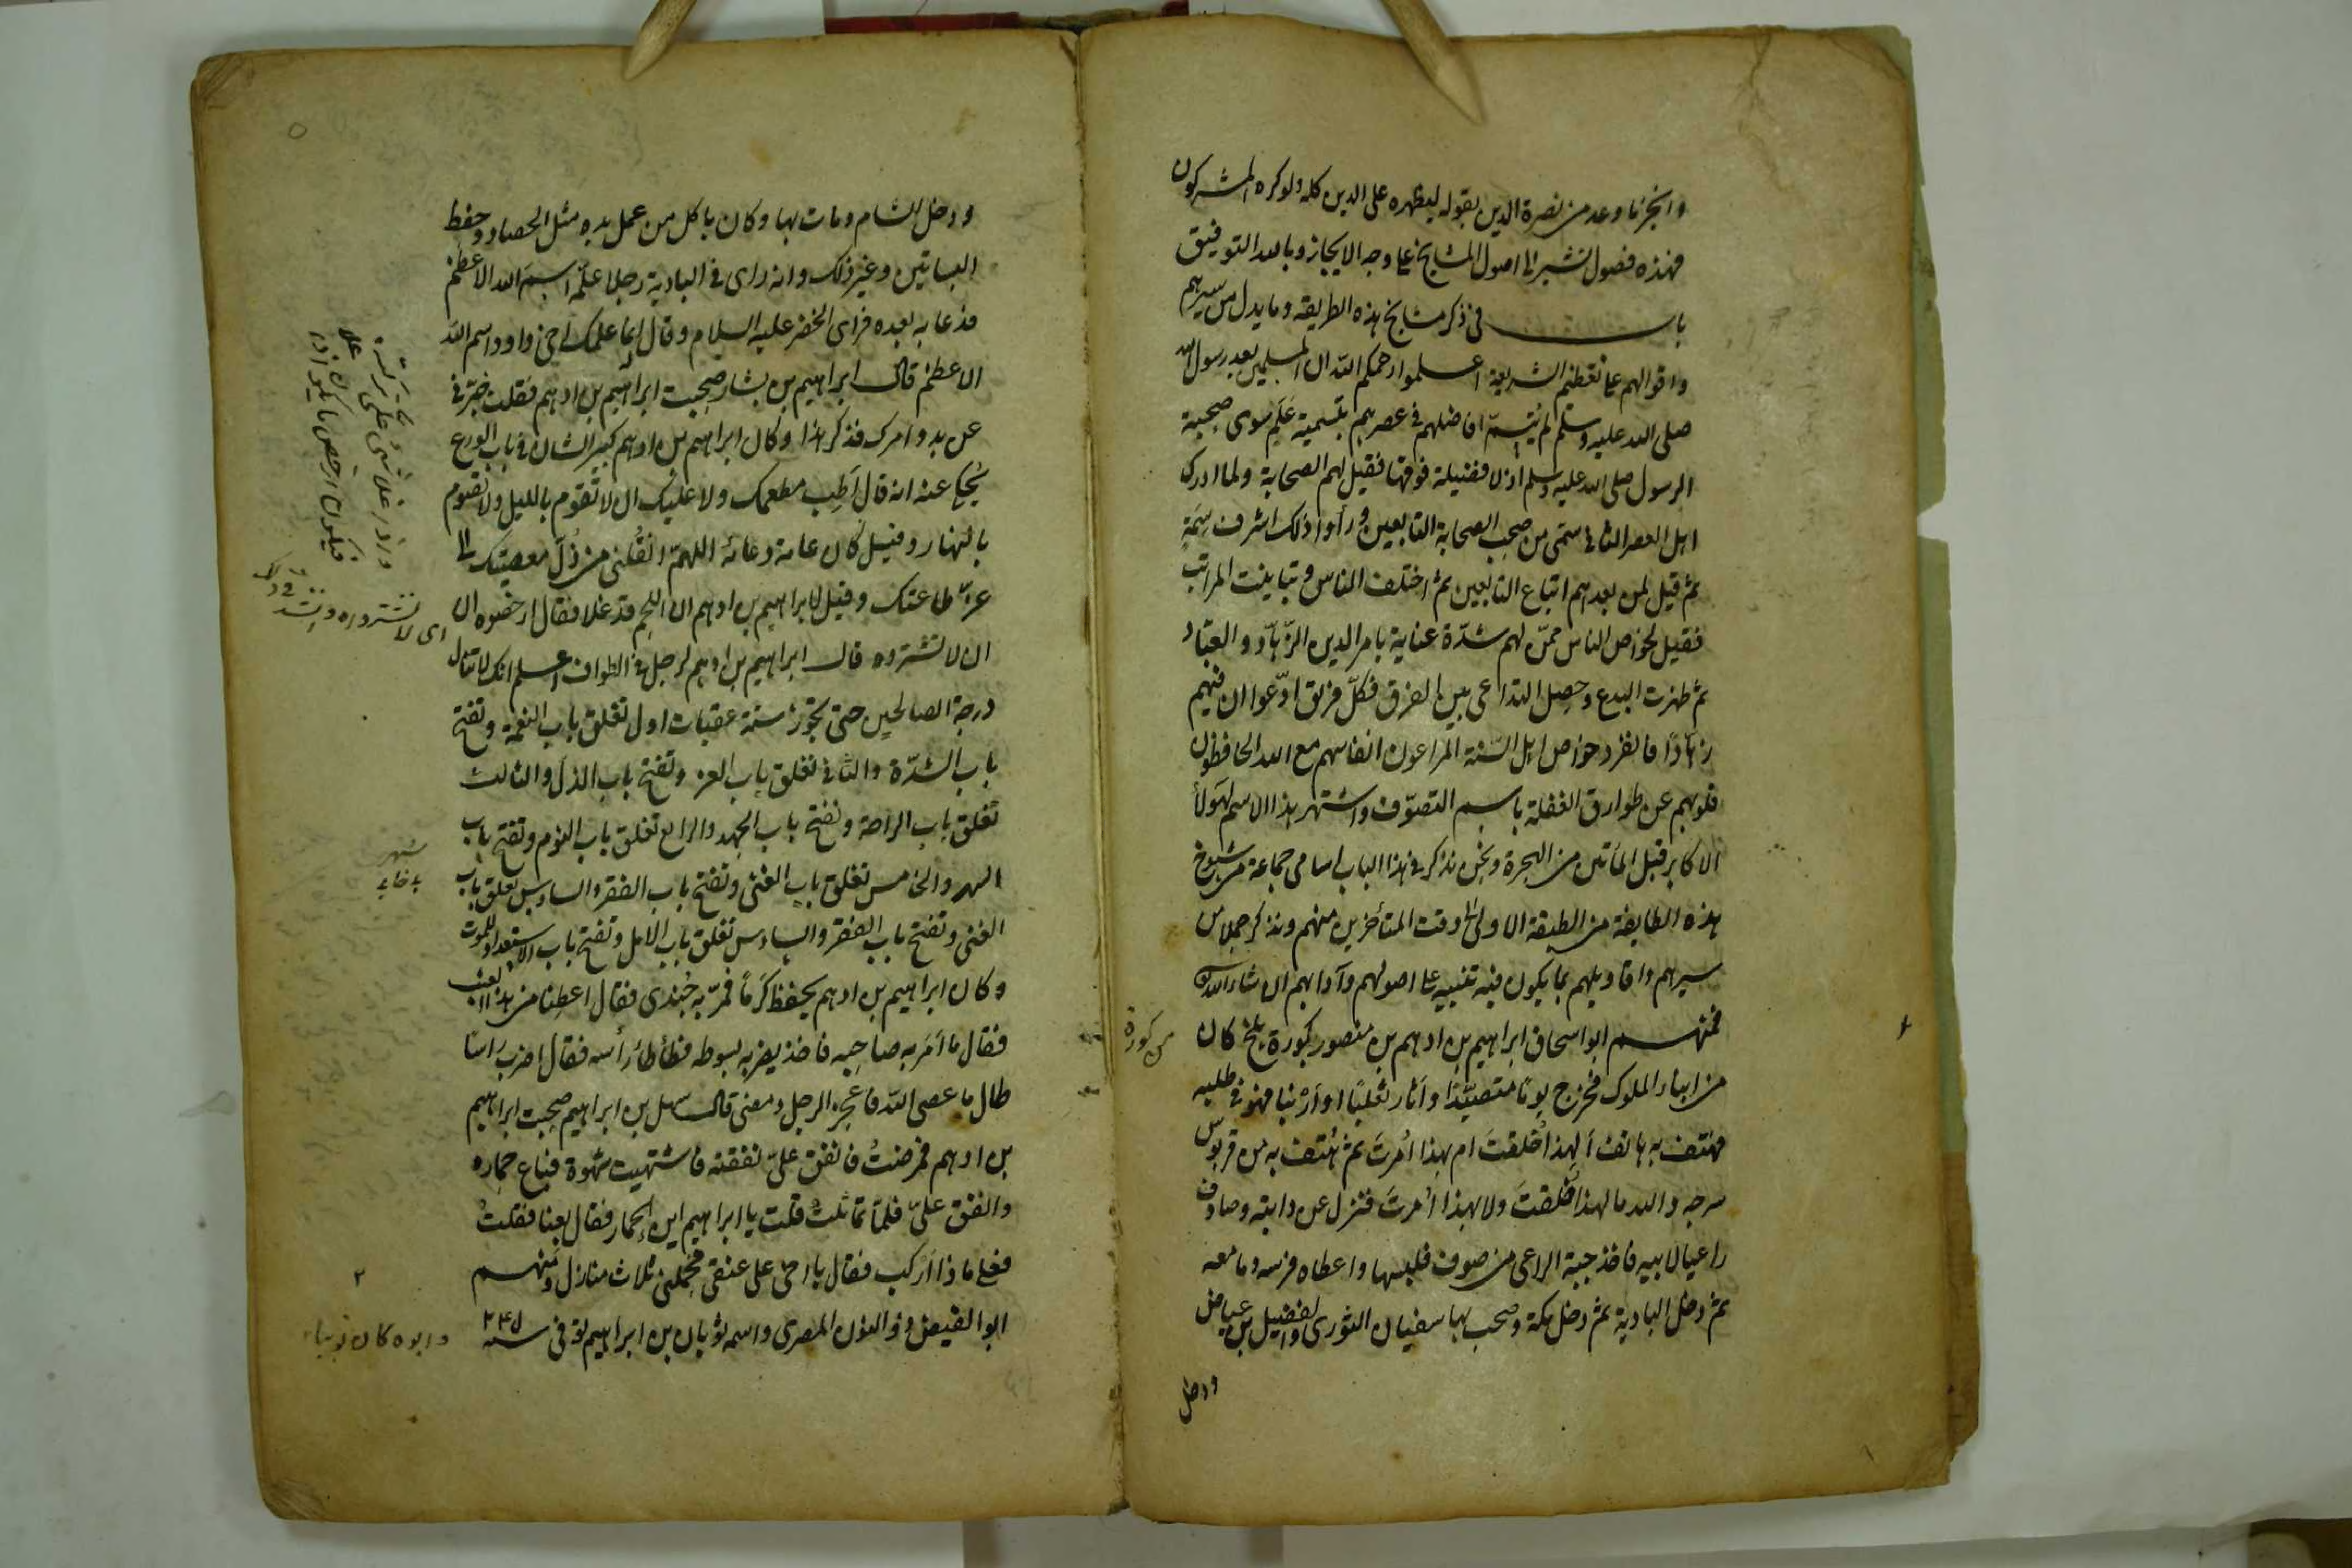 وانجز ما وعد من نصرة الدين بقوله ليظهره على الدين كله ولو كره المشركون
فهذه فصول تشير الى اصول المشايخ على وجه الايجاز وبالله التوفيق
باب فى ذكر مشايخ هذه الطريقة وما يدل من سيرهم
واقوالهم على تعظيم الشريعة اعلموا رحمكم الله ان المسلمين بعد رسول الله
صلى الله عليه وسلم لم يتسمّ افاضلهم فى عصرهم بتسمية عَلَم سوى صحبة
الرسول صلى الله عليه وسلم اذ لا فضيلة فوقها فقيل لهم الصحابة ولما ادرك
اهل العصر الثانى سمّى من صحب الصحابة التابعين ورأوا ذلك اشرف سِمَةٍ
ثم قيل لمن بعدهم اتباع التابعين ثم اختلف الناس وتباينت المراتب
فقيل لخواص الناس ممّن لهم شدّة عناية بامر الدين الزّهّاد والعبّاد
ثم ظهرت البدع وحصل التداعى بين الفرق فكلّ فريق ادّعوا ان فيهم
زهّادًا فانفرد خواص اهل السّنة المراعون انفاسهم مع الله الحافظون
قلوبهم عن طوارق الغفلة باسم التصوّف واشتهر هذا الاسم لهؤلأ
الاكابر قبل المأتين من الهجرة ونحن نذكر فى هذا الباب اسامى جماعة من شيوخ
هذه الطايفة من الطبقة الاولى الى وقت المتأخرين منهم ونذكر جملا من
سيرهم واقاويلهم بما يكون فيه تنبيه على اصولهم وآدابهم ان شاء الله
فمنهم ابو اسحاق ابراهيم بن ادهم بن منصور كبورة بلخ كان
من كورة
من ابناء الملوك فخرج يومًا متصيّدًا واثار ثعلبًا او ارنبا فهو فى طلبه
فهتف به هاتف ألهذا خُلقتَ ام بهذا اُمرتَ ثم هُتف به من قربوس
سرجه والله ما لهذا خُلقتَ ولا بهذا اُمرتَ فنزل عن دابته وصادف
راعيا لابيه فاخذ جبة الراعى من صوف فلبسها واعطاه فرسه وما معه
ثم دخل البادية ثم دخل مكة وصحب بها سفيان الثورى والفضيل بن عياض
ودخل
ودخل الشام ومات بها وكان ياكل من عمل يده مثل الحصاد وحفظ
البساتين وغير ذلك وانه راى فى البادية رجلا علّمه اسم الله الاعظم
فدعا به بعده فراى الخضر عليه السلام وقال انما علمك اخى داود اسم الله
الاعظم قال ابراهيم بن بشار صحبت ابراهيم بن ادهم فقلت خبّرنى
عن بدو امرك فذكر هذا وكان ابراهيم بن ادهم كبير الشان فى باب الورع
يُحكى عنه انه قال اَطِب مطعمك ولا عليك ان لا تقوم بالليل ولا تصوم
بالنهار وقيل كان عامة دعائه اللهمّ انقلنى من ذُلّ معصيتك الى
عزّ طاعتك وقيل لابراهيم بن ادهم ان اللحم قد غلا فقال ارخصوه ان
ان لا تشتروه قال ابراهيم بن ادهم لرجل فى الطواف اعلم انك لا تنال
درجة الصالحين حتى تجوز ستة عقبات اول تغلق باب النعمة وتفتح
باب الشدّة والثانى تغلق باب العز وتفتح باب الذل والثالث
تغلق باب الراحة وتفتح باب الجهد والرابع تغلق باب النوم وتفتح باب
السهر والخامس تغلق باب الغنى وتفتح باب الفقر والسادس تغلق باب
الغنى وتفتح باب الفقر والسادس تغلق باب الامل وتفتح باب الاستعداد للموت
وكان ابراهيم بن ادهم يحفظ كرمًا فمرّ به جُندى فقال اعطنا من هذا العنب
فقال ما اَمَر به صاحبه فاخذ يضربه بسوطه فطأطأ رأسه فقال اضرب راسًا
طال ما عصى الله فاعجز الرجل ومضى قال سهل بن ابراهيم صحبت ابراهيم
بن ادهم فمرضتُ فانفق علىّ نفقته فاشتهيت شهوة فباع حماره
وانفق علىّ فلمّا تماثلتُ قلت يا ابراهيم اين الحمار فقال بعنا فقلتُ
فعلى ماذا أركب فقال يا اخى على عنقى فحملنى ثلاث منازل ومنهم
ابو الفيض ذو النون المصرى واسمه ثوبان بن ابراهيم توفى سنة ٢٤٥
واذا غلا شىء علىّ تركته
فيكون ارخص ما يكون اذا غلا
اى لا تشتروه
وابوه كان نوبيا
٢